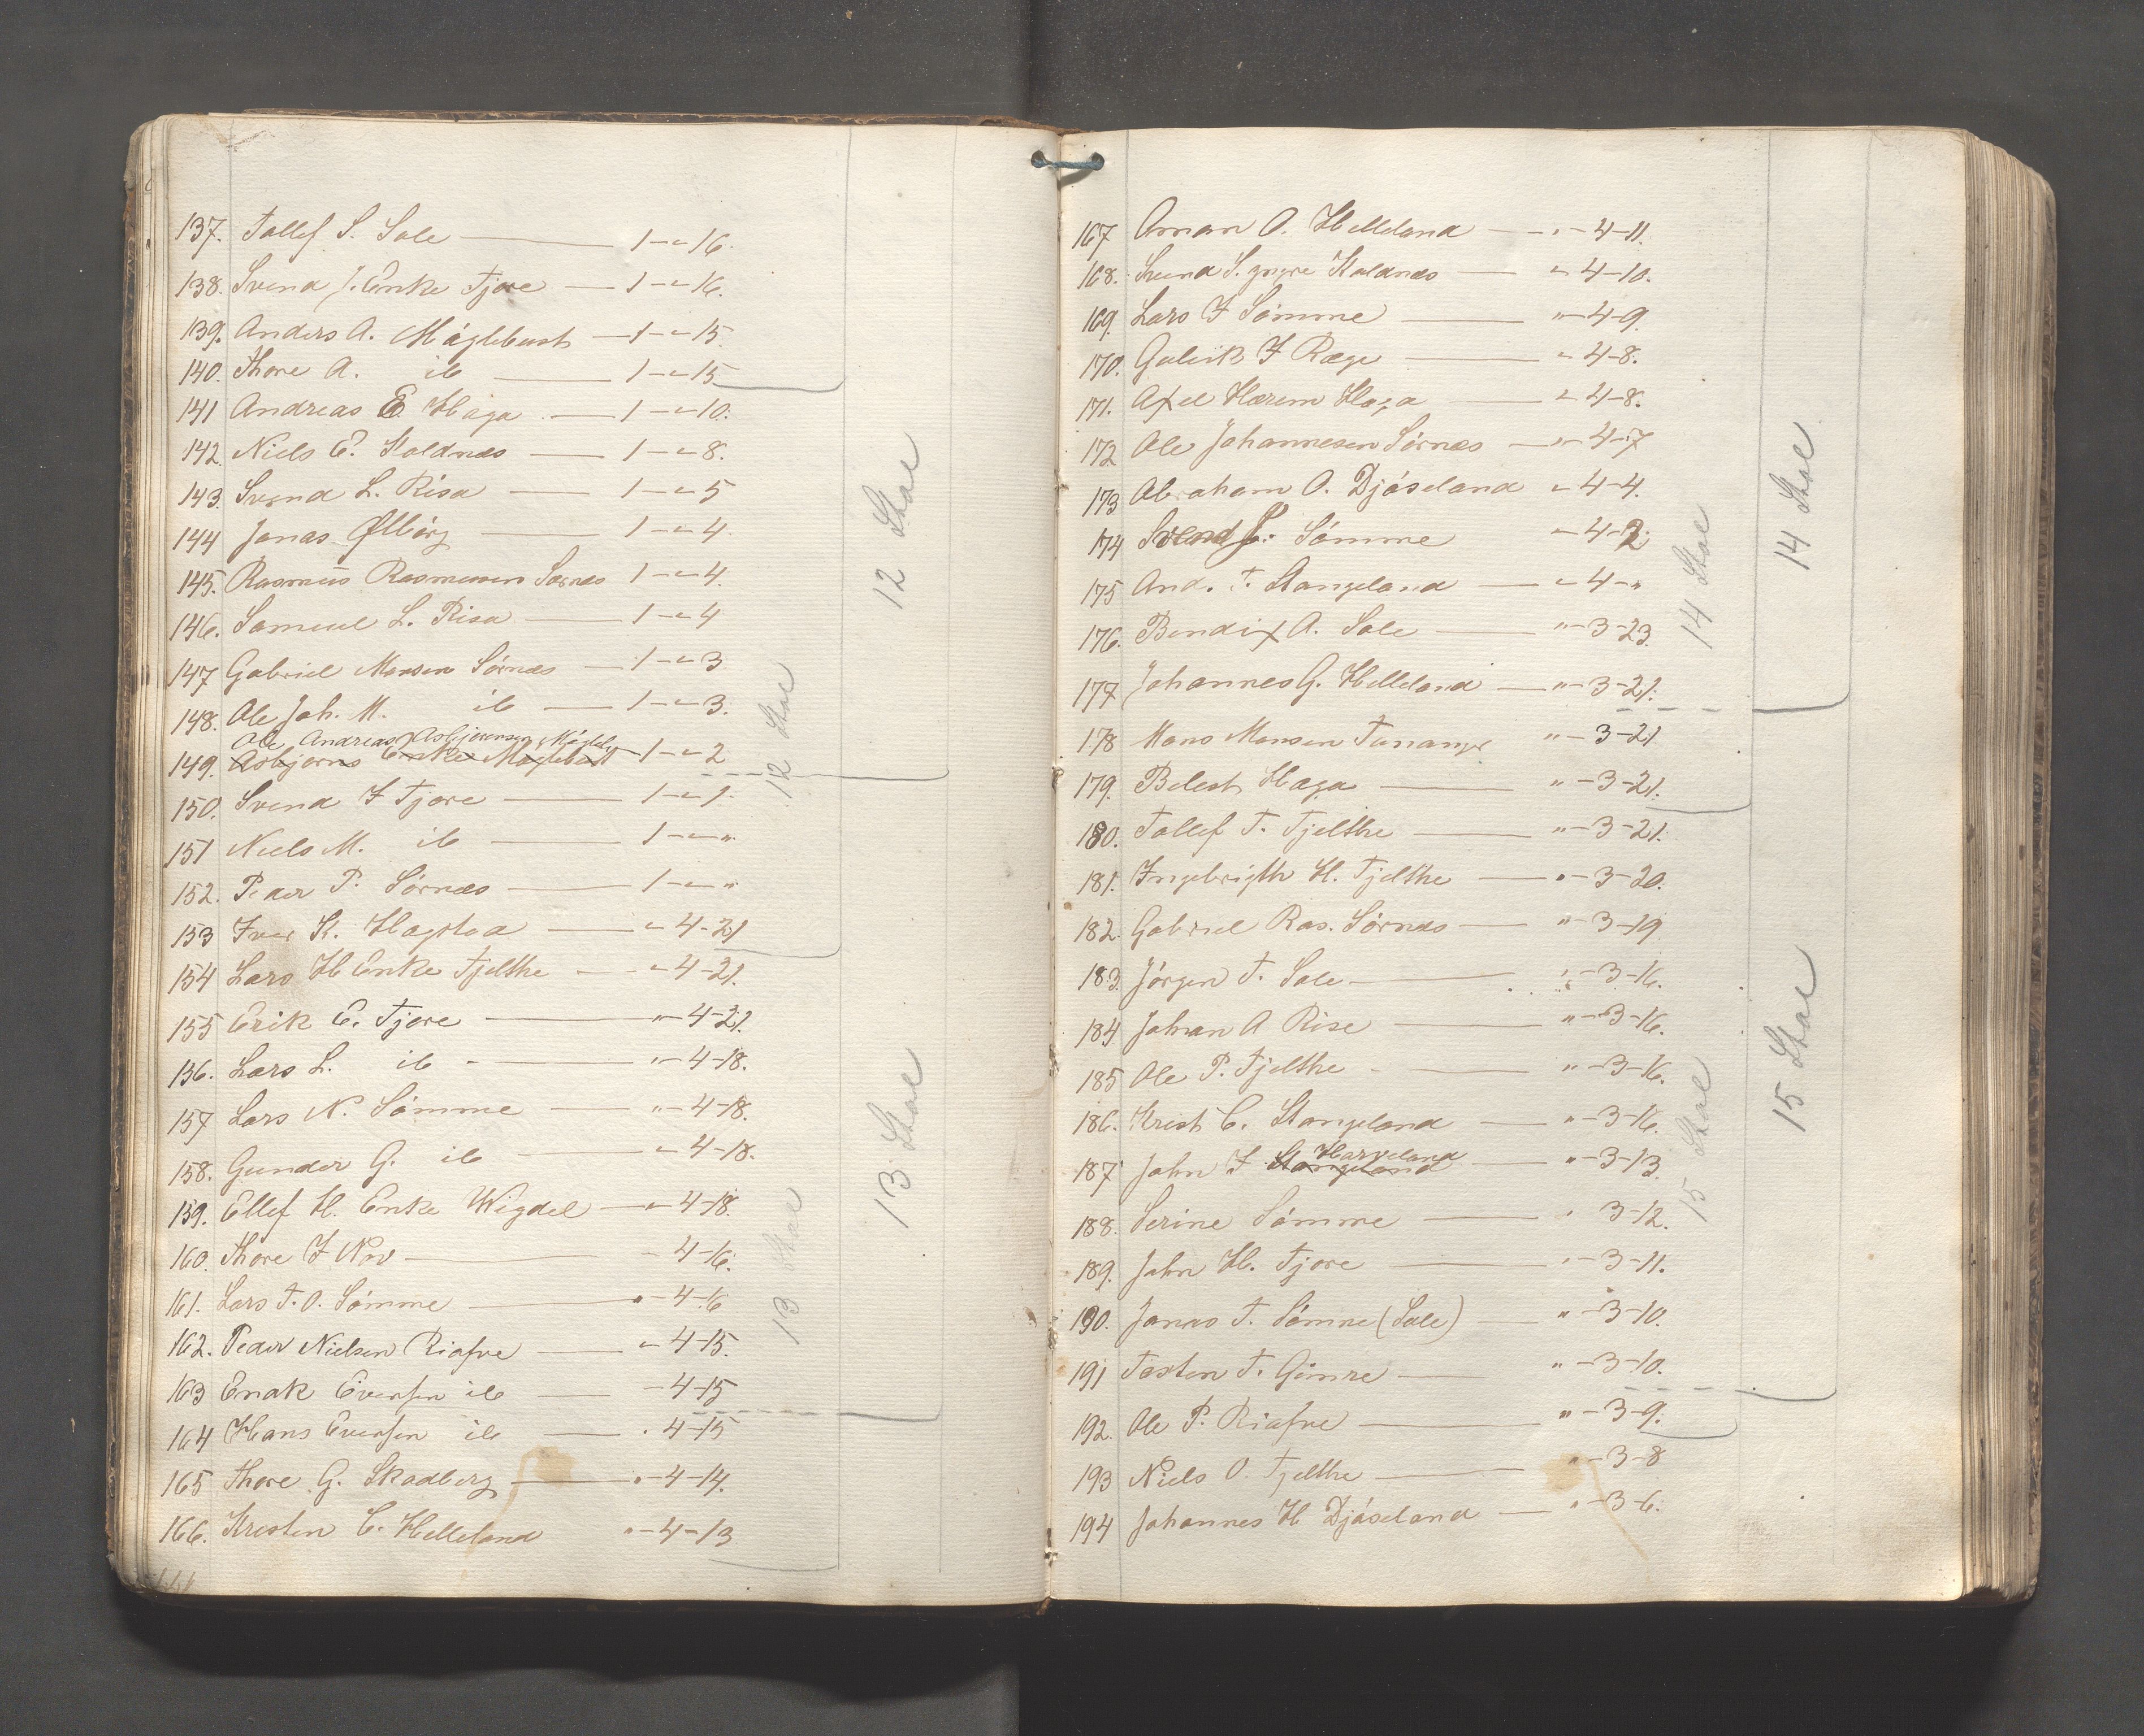 137. Tollef S. Sole — 1 - " - 16.
138. Svend J. Enke Tjore — 1 - " - 16.
139. Anders A. Måglebust — 1 - " - 15.
140. Thore A. ib — 1 - " - 15
141 Andreas E. Haga — 1 - " - 10.
142. Niels E. Koldnes — 1 - " - 8.
143. Svend L. Risa — 1 - " - 5
144 Jonas Ølbårg — 1 - " - 4.
145. Rasmus Rasmussen Sørnes 1 - " - 4.
146. Samuel L. Risa — 1 - " - 4
147 Gabriel Monsen Sörnes — 1 - " - 3
148. Ole Joh. M. ib — 1 - " - 3.
Ole Andreas Asbjörensen Mågleb
149. Asbjorns Enke Måglebust 1 - " - 2
150. Svend I Tjore — 1 - " - 1.
151 Niels M. ib — 1 - " - "
152. Peder P. Sörnes — 1 - " - "
153 Iver K. Hagstoa — " - 4 - 21
154 Lars H Enke Tjelthe — " - 4 - 21.
155 Erik E. Tjore — " - 4 - 21.
156. Lars L. ib — " - 4 - 18.
157 Lars N. Sömme — " - 4 - 18.
158. Gunder G. ib — " - 4 - 18.
159. Ellef H. Enke Wigdel — " - 4 - 18.
160. Thore I Nov — - 4 - 16.
161. Lars T. O. Sömme — " - 4 - 16
162. Peder Nielsen Riafve — " - 4 - 15.
163 Enok Eversen ib — - 4 - 15
164 Hans Eversen ib — . 4 - 15
165 Thore G. Skadberg — " - 4 - 14.
166. Kresten C. Helleland " - 4 - 13
12 Stol
12 Stol
13 Stol
13 Stol
167 Aman O. Helleland — " - 4 - 11.
168. Svend S. yngre Koldnes — " 4 - 10.
169. Lars I Sömme — " - 4 - 9.
170. Gulerik I Ræge — " 4 - 8.
171. Axel Harem Haga — " 4 - 8.
172 Ole Johannesen Sörnes — " 4 - 7
173 Abraham O. Djåseland " 4 - 4.
174 Svend J. Sömme " - 4 - 2.
175 And. T. Stangeland — " 4 - "
176. Bendix A. Sole — " - 3 - 23.
177 Johannes G. Helleland — " - 3 - 21.
178 Mons Monsen Tananger " - 3 - 21
179. Belest Haga — " - 3 - 21.
180. Tollef T. Tjelthe — " - 3 - 21.
181. Ingebrigth H. Tjelthe — " - 3 - 20.
182. Gabriel Ras. Sörnes — " - 3 - 19
183. Jörgen T. Sole — " - 3 - 16.
184 Johan A Rise — " - 3 - 16.
185 Ole P. Tjelthe — " - 3 - 16.
186. Krist C. Stangeland — " - 3 - 16.
Harveland
187 John I Stangeland — " - 3 - 13.
188. Serine Sömme — " 3 - 12.
189. John H. Tjore — " - 3 - 11.
190. Jonas T. Sömme (Sole) — " - 3 - 10.
191 Tosten T. Gimre — " - 3 - 10.
192. Ole P. Riafve — " - 3 - 9.
193 Niels O. Tjelthe — " - 3 - 8
194 Johannes H Djåseland — " - 3 - 6.
14 Stol
14 Stol
15 Stol
15 Stol